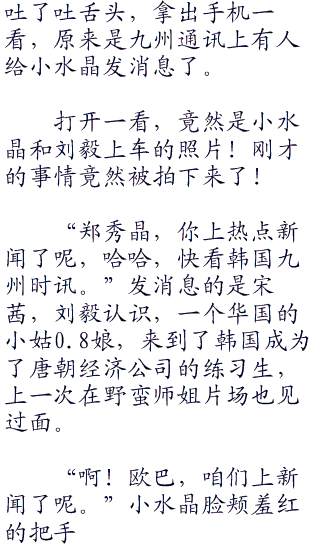 吐了吐舌头，拿出手机一
看，原来是九州通讯上有人
给小水晶发消息了。
打开一看，竟然是小水
晶和刘毅上车的照片！刚才
的事情竟然被拍下来了！
“郑秀晶，你上热点新
闻了呢，哈哈，快看韩国九
州时讯。”发消息的是宋
茜，刘毅认识，一个华国的
小姑0.8娘，来到了韩国成为
了唐朝经济公司的练习生，
上一次在野蛮师姐片场也见
过面。
“啊！欧巴，咱们上新
闻了呢。”小水晶脸颊羞红
的把手